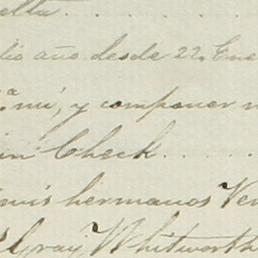 elta.
dio año desde 22. Ene
mi, y componer
in Check.
mis hermanos Ven
Gray Whitworth